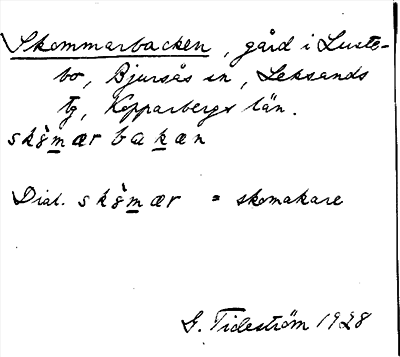 Skommarbacken, gård i Luste-
bo, Bjursås sn, Leksands
tg, Kopparbergs län.
skò̀mær bakæn
Dial. skò̀mær = skomakare
G. Tideström 1928